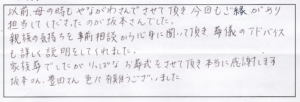 以前、母の時もやながわさんでさせて頂き今回もご縁があり
担当してくださったのが坂本さんでした。
親族の気持ちを事前相談から心身に聞いて頂き葬儀のアドバイス
も詳しく説明をしてくれました。
家族葬でしたがりっぱなお葬式をさせて頂き本当に感謝します
坂本さん、豊田さん色々有難うございました。